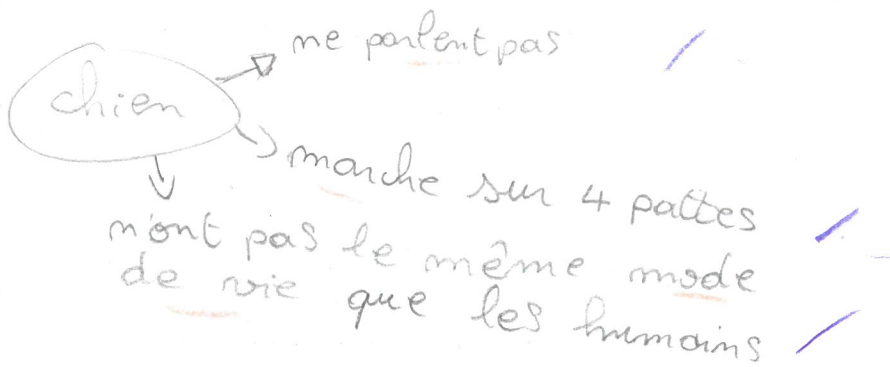 ne parlent pas
chien
marche sur 4 pattes
n'ont pas le même mode
de vie que les humains